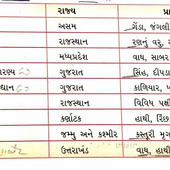 રાજ્ય પ્રા
અસમ ગેંડા, જંગલી
રાજસ્થાન રણનું વરુ,
મધ્યપ્રદેશ વાઘ, સાબર
ારણ્ય ગુજરાત સિંહ, દીપડા
દ્યાન ગુજરાત કાળિયાર,
રાજસ્થાન વિવિધ પક્ષી
કર્ણાટક હાથી, રીંછ
જમ્મુ અને કશ્મીર કસ્તુરી મૃગ
ઉત્તરાખંડ વાઘ, હાથી